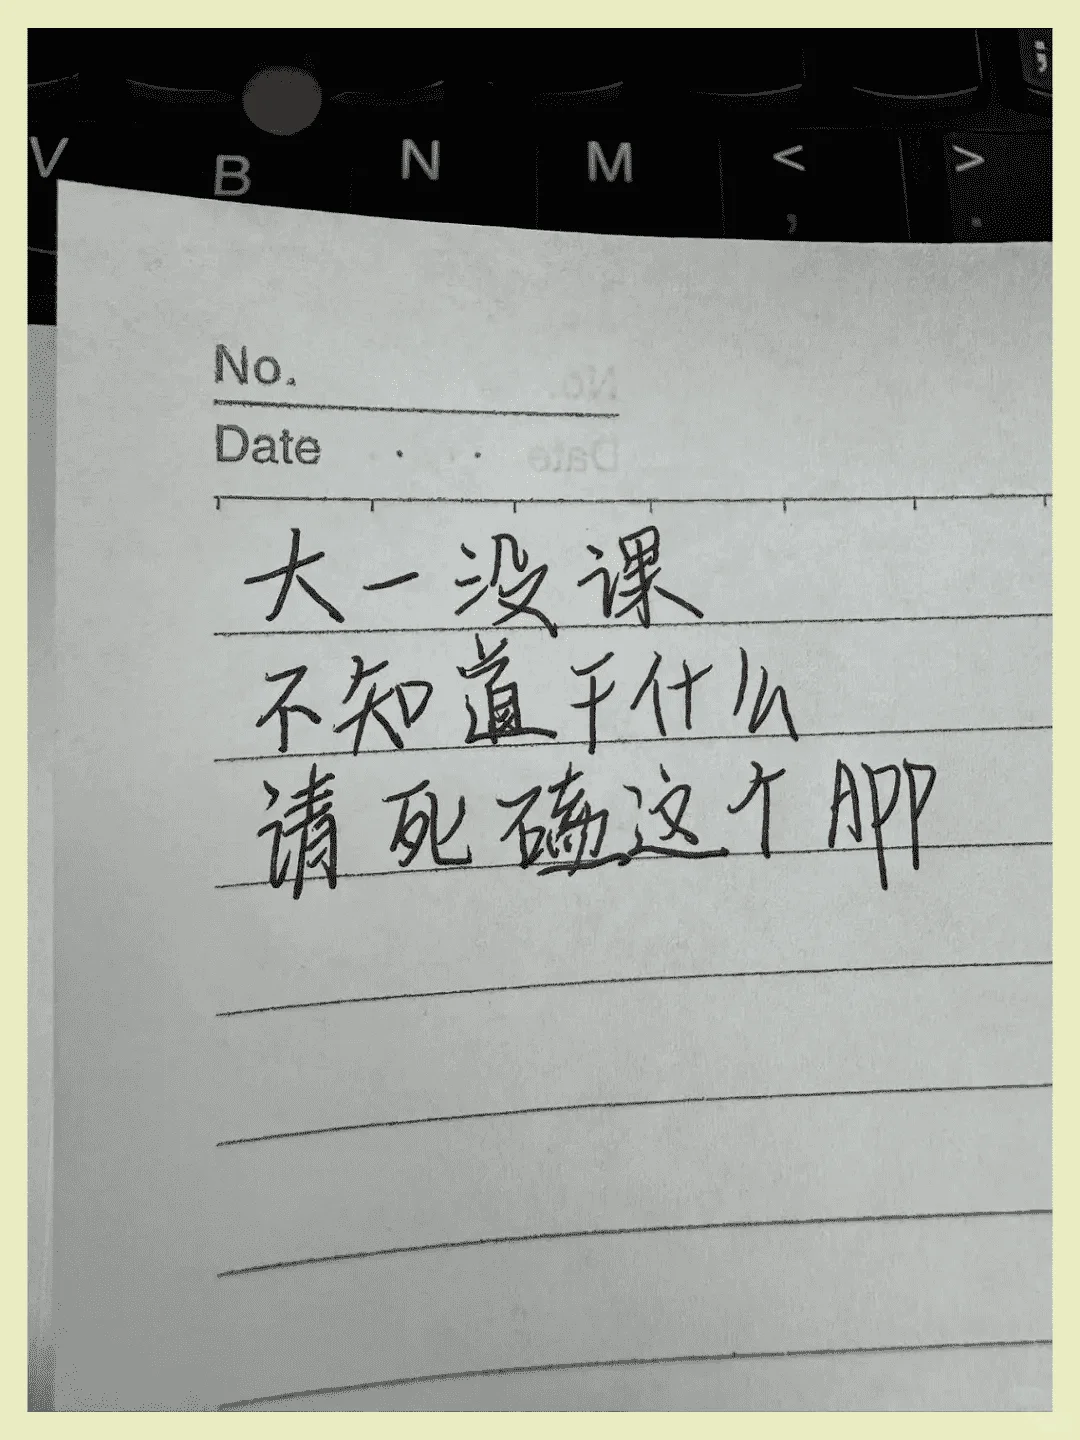 ;
V B N M < >
, .
No.
Date . .
大一没课
不知道干什么
请死磕这个APP